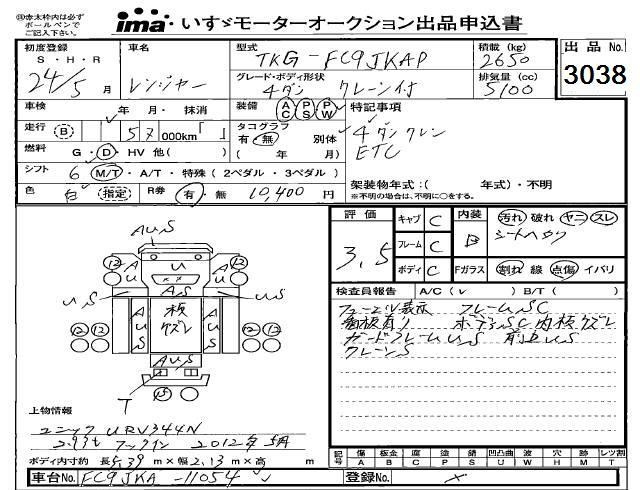 ㊟赤太枠内は必ず
ボールペンで
ご記入下さい。
ima いすゞモーターオークション出品申込書
初度登録 車名 型式 積載 (kg) 出品 No.
S・H・R TKG-FC9JKAP 2650
24/5 月 レンジャー グレード・ボディ形状 排気量 (cc) 3038
4ダン クレーン付 5100
車検 年 月・抹消 装備 AC PS PW 特記事項
走行 (B) 57 000km「 」 タコグラフ 4ダンクレン
有・無 別体 ETC
燃料 G・D・HV 他( ) ( 年 月)
シフト 6 M/T・A/T・特殊(2ペダル・3ペダル) 架装物年式:( 年式)・不明
色 白 (指定) R券 有・無 10,400 円 ※不明の場合は、不明に○をする。
評価 キャブ C 内装 汚れ 破れ ヤニ スレ
3.5 フレーム C B シートヘタリ
ボディ C Fガラス 割れ 線 点傷 イバリ
検査員報告 A/C ( ν ) B/T ( )
AUS
12 A U A 12
US US
AS
12 12 A U S 板 ケズレ A U S 12 12
AUS
T 15
フレームSC
ボデーSC 内板ケズレ
ガードフレームUS
クレーンS
上物情報
ユニック URV344N
2.93t フックイン 2012年5月
ボディ内寸約 長5.39 m×幅2.13 m×高 m
記号 傷 板金 腐 塗 錆 凹凸曲 波 穴 跡 レツ割
A B C P S U W H M T
車台No. FC9JKA-11054 登録No.